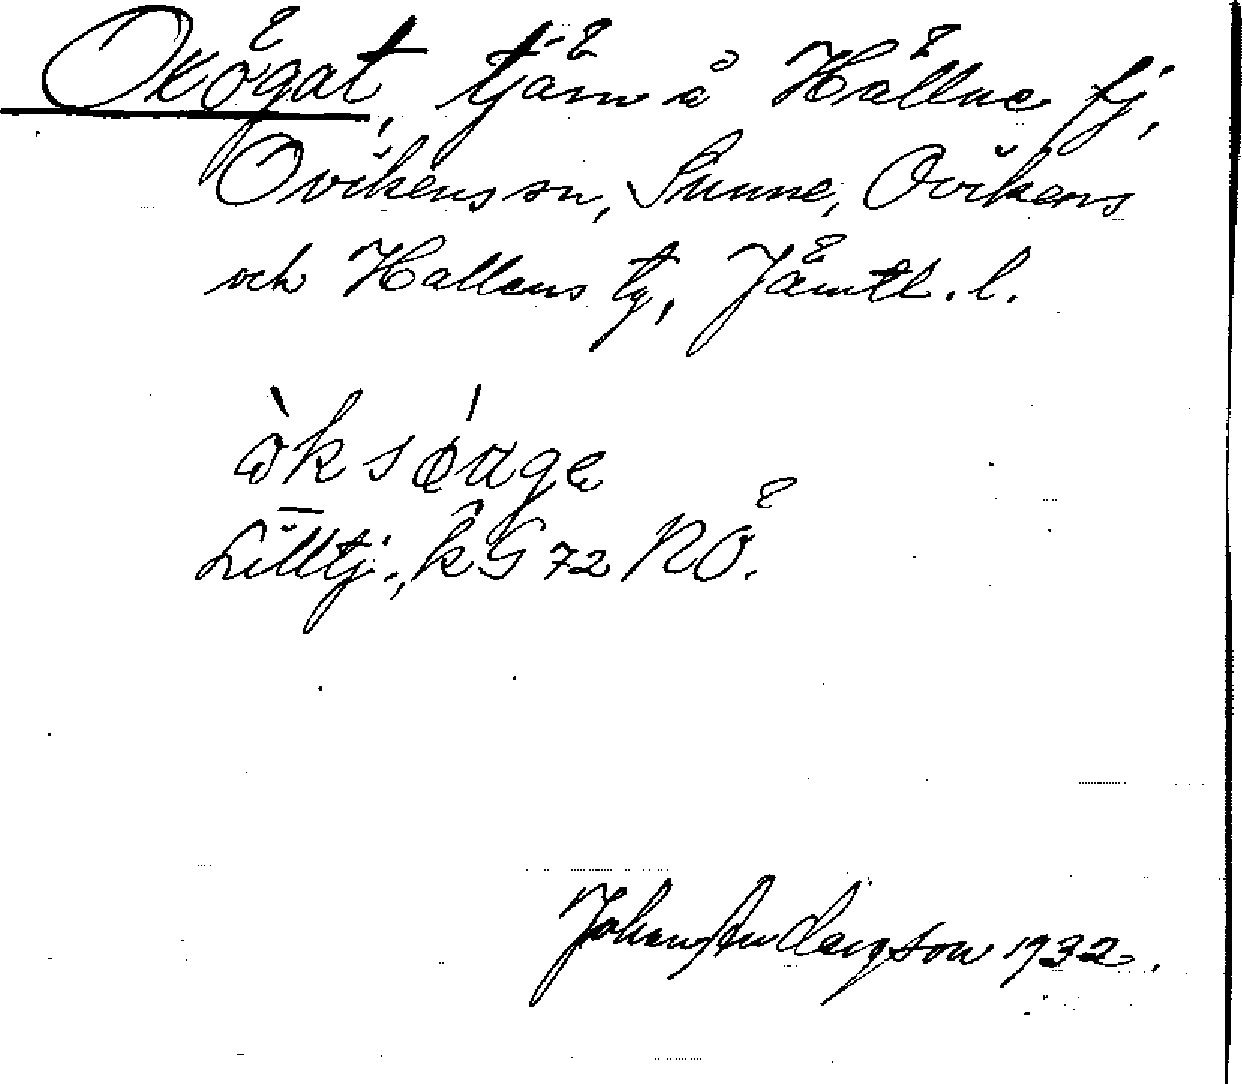 Oxögat, tjärn å Hållne fj,
Ovikens sn, Sunne, Ovikens
och Hallens tg, Jämtl. l.
Lilltj., k G 72 NO.
Johan Anderson 1932.